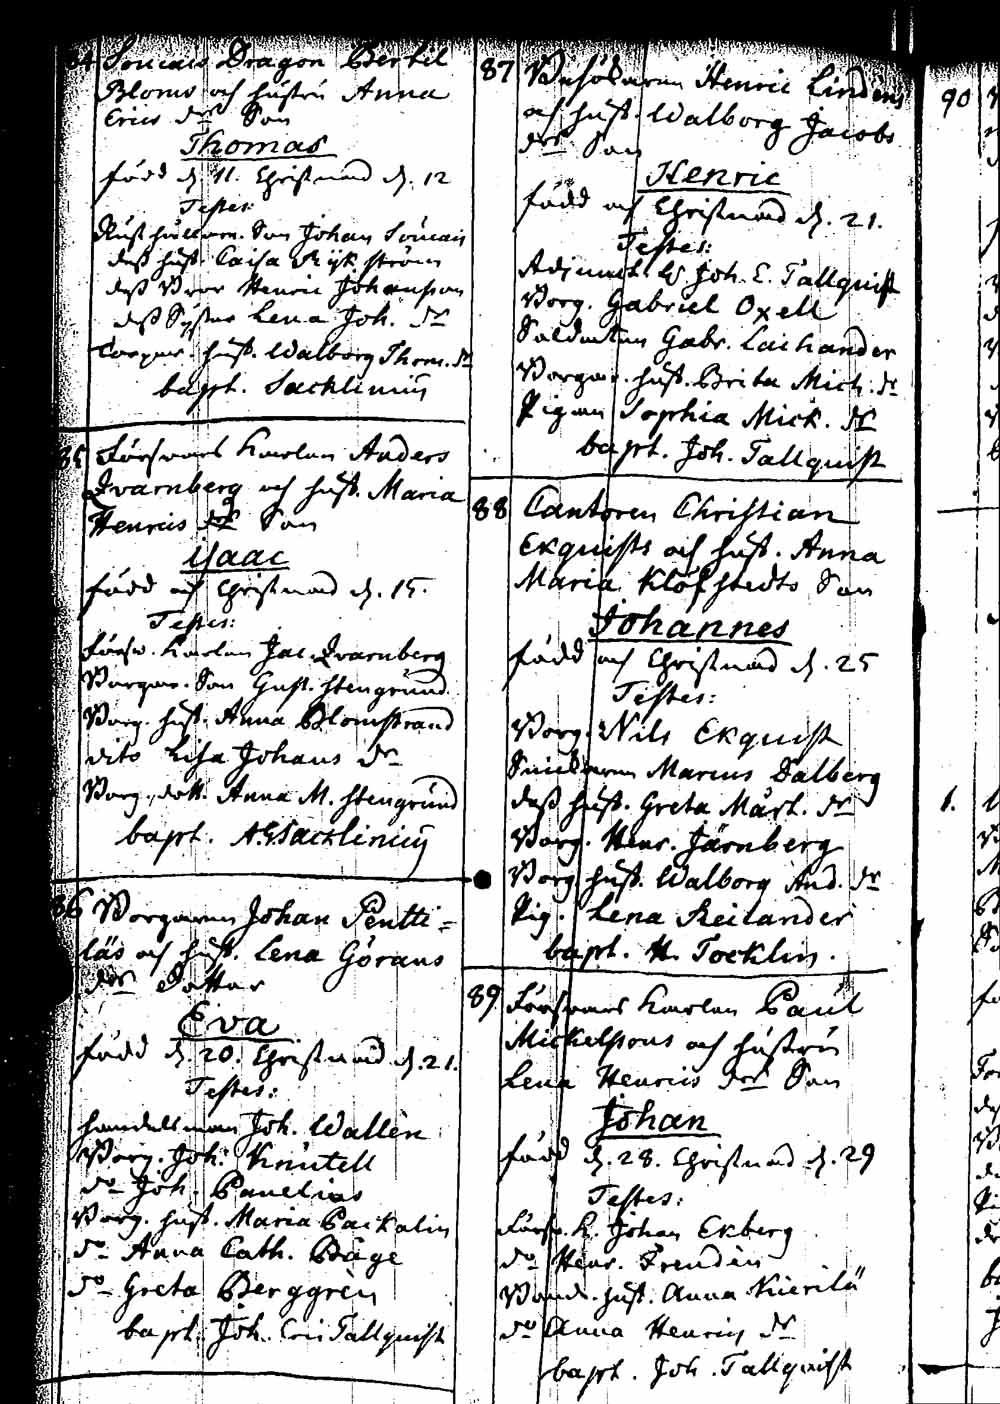 84 Soucais Dragon Bertil
Bloms och hustru Anna
Erics dr Son
Thomas
född d. 11. Christnad d. 12
Testes:
Rusthållaren. Son Johan Soucais
deß hust. Caisa Rijkström
deß Bror Henric Johansson
deß Syster Lena Joh. dr
Corpor. hust. Walborg Thom. dr
bapt. Sacklinius
85 Försvars Karlen Anders
Qvarnberg och hust. Maria
Henrics dr Son
Isaac
född och Christnad d. 15.
Testes:
Försv. Karlen Jac. Qvarnberg
Borgar. Son Gust. Stengrund
Borg. hust. Anna Blomstrand
dito Lisa Johans dr
Borg. dott. Anna M. Stengrund
bapt. A. G. Sacklinius
86 Borgaren Johan Pentti=
läs och hust. Lena Görans
dr Dotter
Eva
född d. 20. Christnad d. 21.
Testes:
Handelsman Joh. Wallèn
Borg. Joh. Knutell
do Joh. Pauelius
Borg. hust. Maria Paikalin
do Anna Cath. Båge
do Greta Berggrèn
bapt. Joh. Eric Tallquist
87 Henric Lindèns
och hust. Walborg Jacobs
dr Son
Henric
född och Christnad d. 21.
Testes:
Adjunct. W. Joh. E. Tallquist
Borg. Gabriel Oxell
Soldaten Gabr. Laihander
Borgar. hust. Brita Mich. dr
Pigan Sophia Mick. dr
bapt. Joh. Tallquist
88 Cantoren Christian
Ekquists och hust. Anna
Maria Klöfstedts Son
Johannes
född och Christnad d. 25
Testes:
Borg. Nils Ekquist
Marcus Dalberg
deß hust. Greta Mårt. dr
Borg. Henr. Järnberg
Borg. hust. Walborg And. dr
Pig. Lena Reilander
bapt. H. Tocklin.
89 Försvars Karlen Paul
Mickelsons och hustru
Lena Henrics dr Son
Johan
född d. 28. Christnad d. 29
Testes:
Försv. K. Johan Ekberg
do Henr. Frendèn
hust. Anna Kierilä
do Anna Henrics dr
bapt. Joh. Tallquist
90